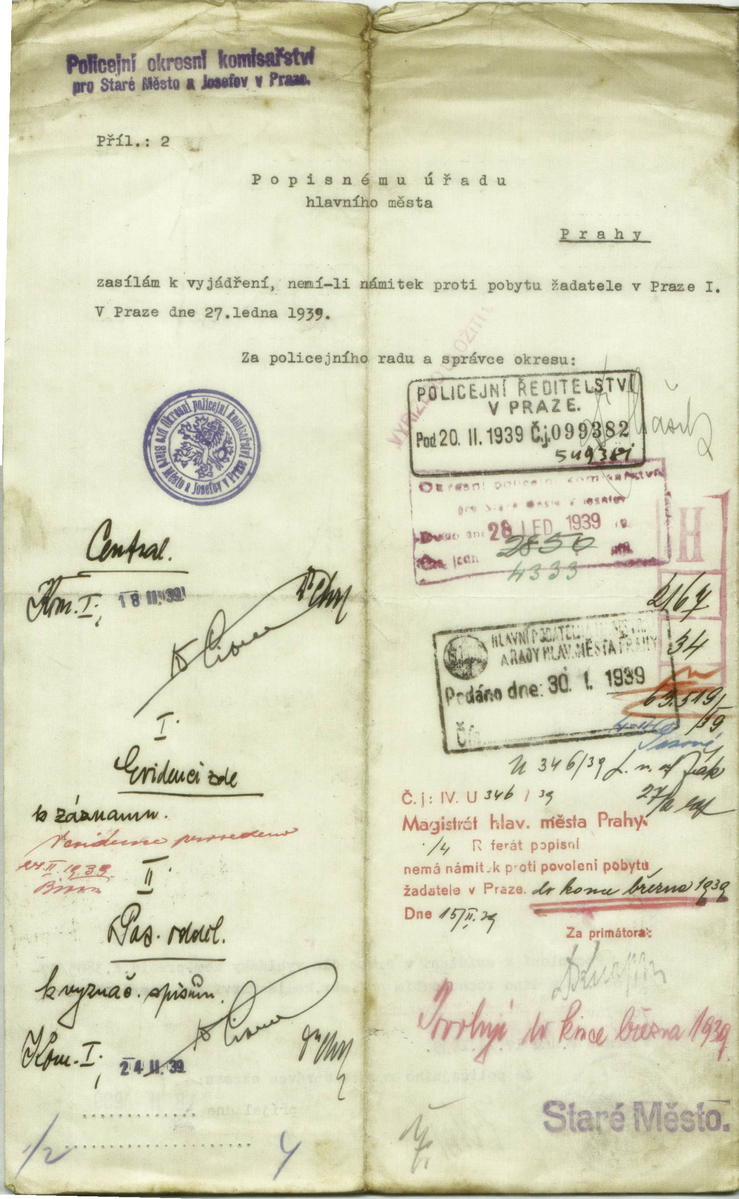 Policejní okresní komisařství
pro Staré Město a Josefov v Praze.
Příl.: 2
Popisnému úřadu
hlavního města
Prahy
zasílám k vyjádření, nemí-li námitek proti pobytu žadatele v Praze I.
V Praze dne 27.ledna 1939.
Za policejního radu a správce okresu:
POLICEJNÍ ŘEDITELSTVÍ
V PRAZE.
Pod 20. II. 1939 Čj.099382
549381
Okresní policejní komisařství
pro Staré Město a Josefov
28 LED 1939
2850
4333
H
2167
34
HLAVNÍ PODATELNA
A RADY HLAV. MĚSTA PRAHY
Podáno dne: 30. 1. 1939
Čís.
63.519/
39
U 346/39
Č.j: IV. U 346 / 39
Magistrát hlav. města Prahy.
1/4 R ferát popisní
nemá námitek proti povolení pobytu
žadatele v Praze. do konce března 1939
Dne 15/II.39
Za primátora:
Povoluji do konce března 1939.
Staré Město.
Okresní policejní komisařství pro Staré Město a Josefov v Praze
Central.
Kom. I.; 18 II 39
I.
Evidenci zde
k záznamu.
V evidenci provedeno
24 II. 1939
II.
Pas. odděl.
k vyznač. spisům.
Kom. I.; 24 II. 39
1/2